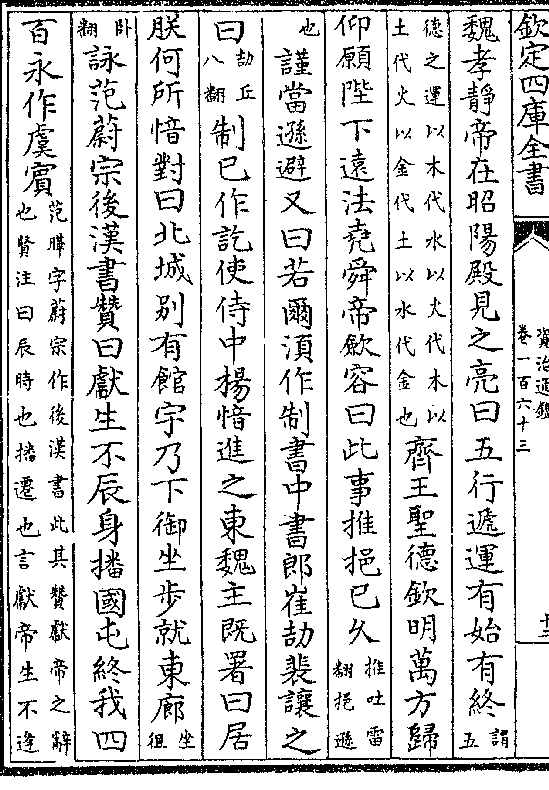 欽定四庫全書
資治通鑑
卷一百六十三
十三
魏孝靜帝在昭陽殿見之亮曰五行遞運有始有終謂五
德之運以木代水以火代木以
土代火以金代土以水代金也齊王聖德欽明萬方歸
仰願陛下遠法堯舜帝歛容曰此事推挹已久推吐雷翻挹遜
也謹當遜避又曰若爾湏作制書中書郎崔劼裴讓之
曰劼丘八翻制已作訖使侍中楊愔進之東魏主既署曰居
朕何所愔對曰北城别有館宇乃下御坐步就東廊坐徂
卧翻詠范蔚宗後漢書贊曰獻生不辰身播國屯終我四
百永作虞賔范曄字蔚宗作後漢書此其贊獻帝之辭
也賢注曰辰時也播遷也言獻帝生不逢